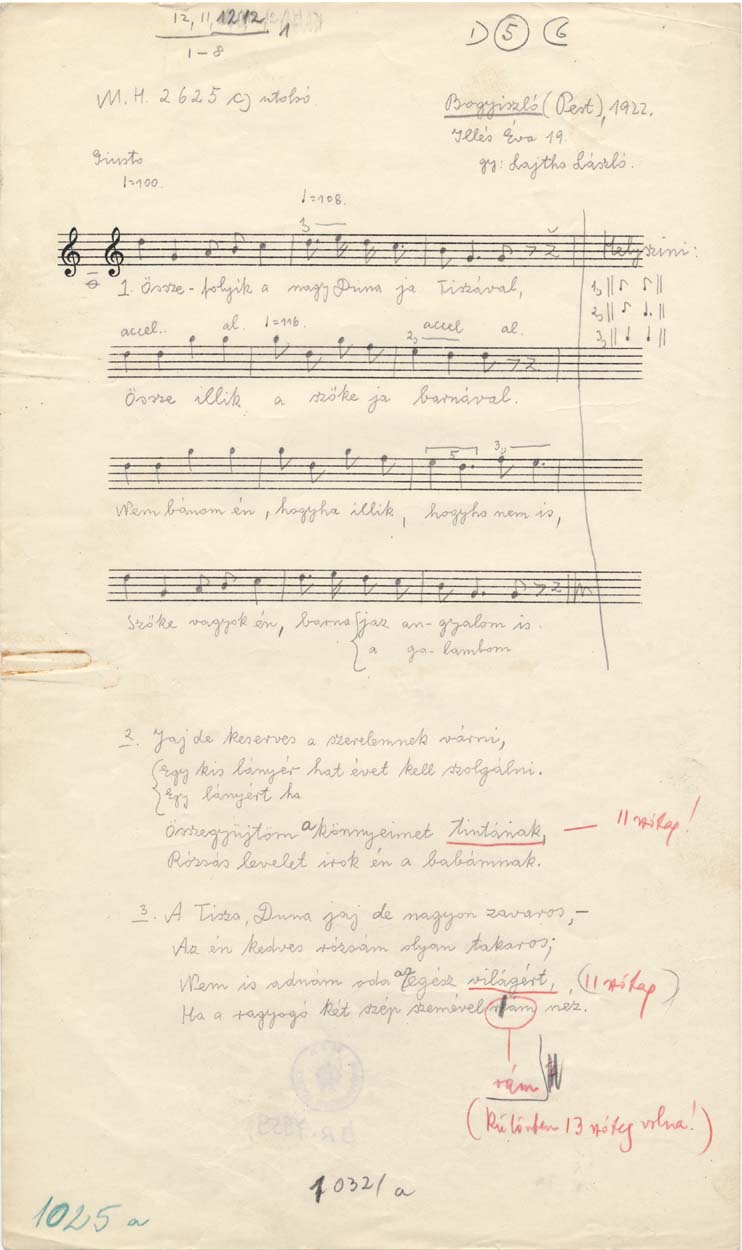 12, 11, 12 12 1
1-8
1) ⑤ 6
M.H. 2625 c) utolsó
Bogyiszló (Pest), 1922.
Illés Éva 19.
gy: Lajtha László.
Giusto
♩=100.
♩=108.
3
Helyszini:
1. Össze-folyik a nagy Duna ja Tiszával,
1,
2,
3,
accel.. al. ♩=116. accel al.
2,
Össze illik a szőke ja barnával.
5 3,
Nem bánom én, hogyha illik, hogyha nem is,
Szőke vagyok én, barna {jaz an-gyalom is.
{a ga-lambom
2. Jaj de keserves a szerelemnek várni,
{Egy kis lányér hat évet kell szolgálni.
{Egy lányért ha
Összegyüjtöm a könnyeimet tintának, — 11 szótag!
Rózsás levelet irok én a babámnak.
3. A Tisza, Duna jaj de nagyon zavaros,-
Az én kedves rózsám olyan takaros;
Nem is adnám oda az egész világért, (11 szótag)
Ha a ragyogó két szép szemével rám néz.
rám
(Különben 13 szótag volna!)
1032/a
1025 a